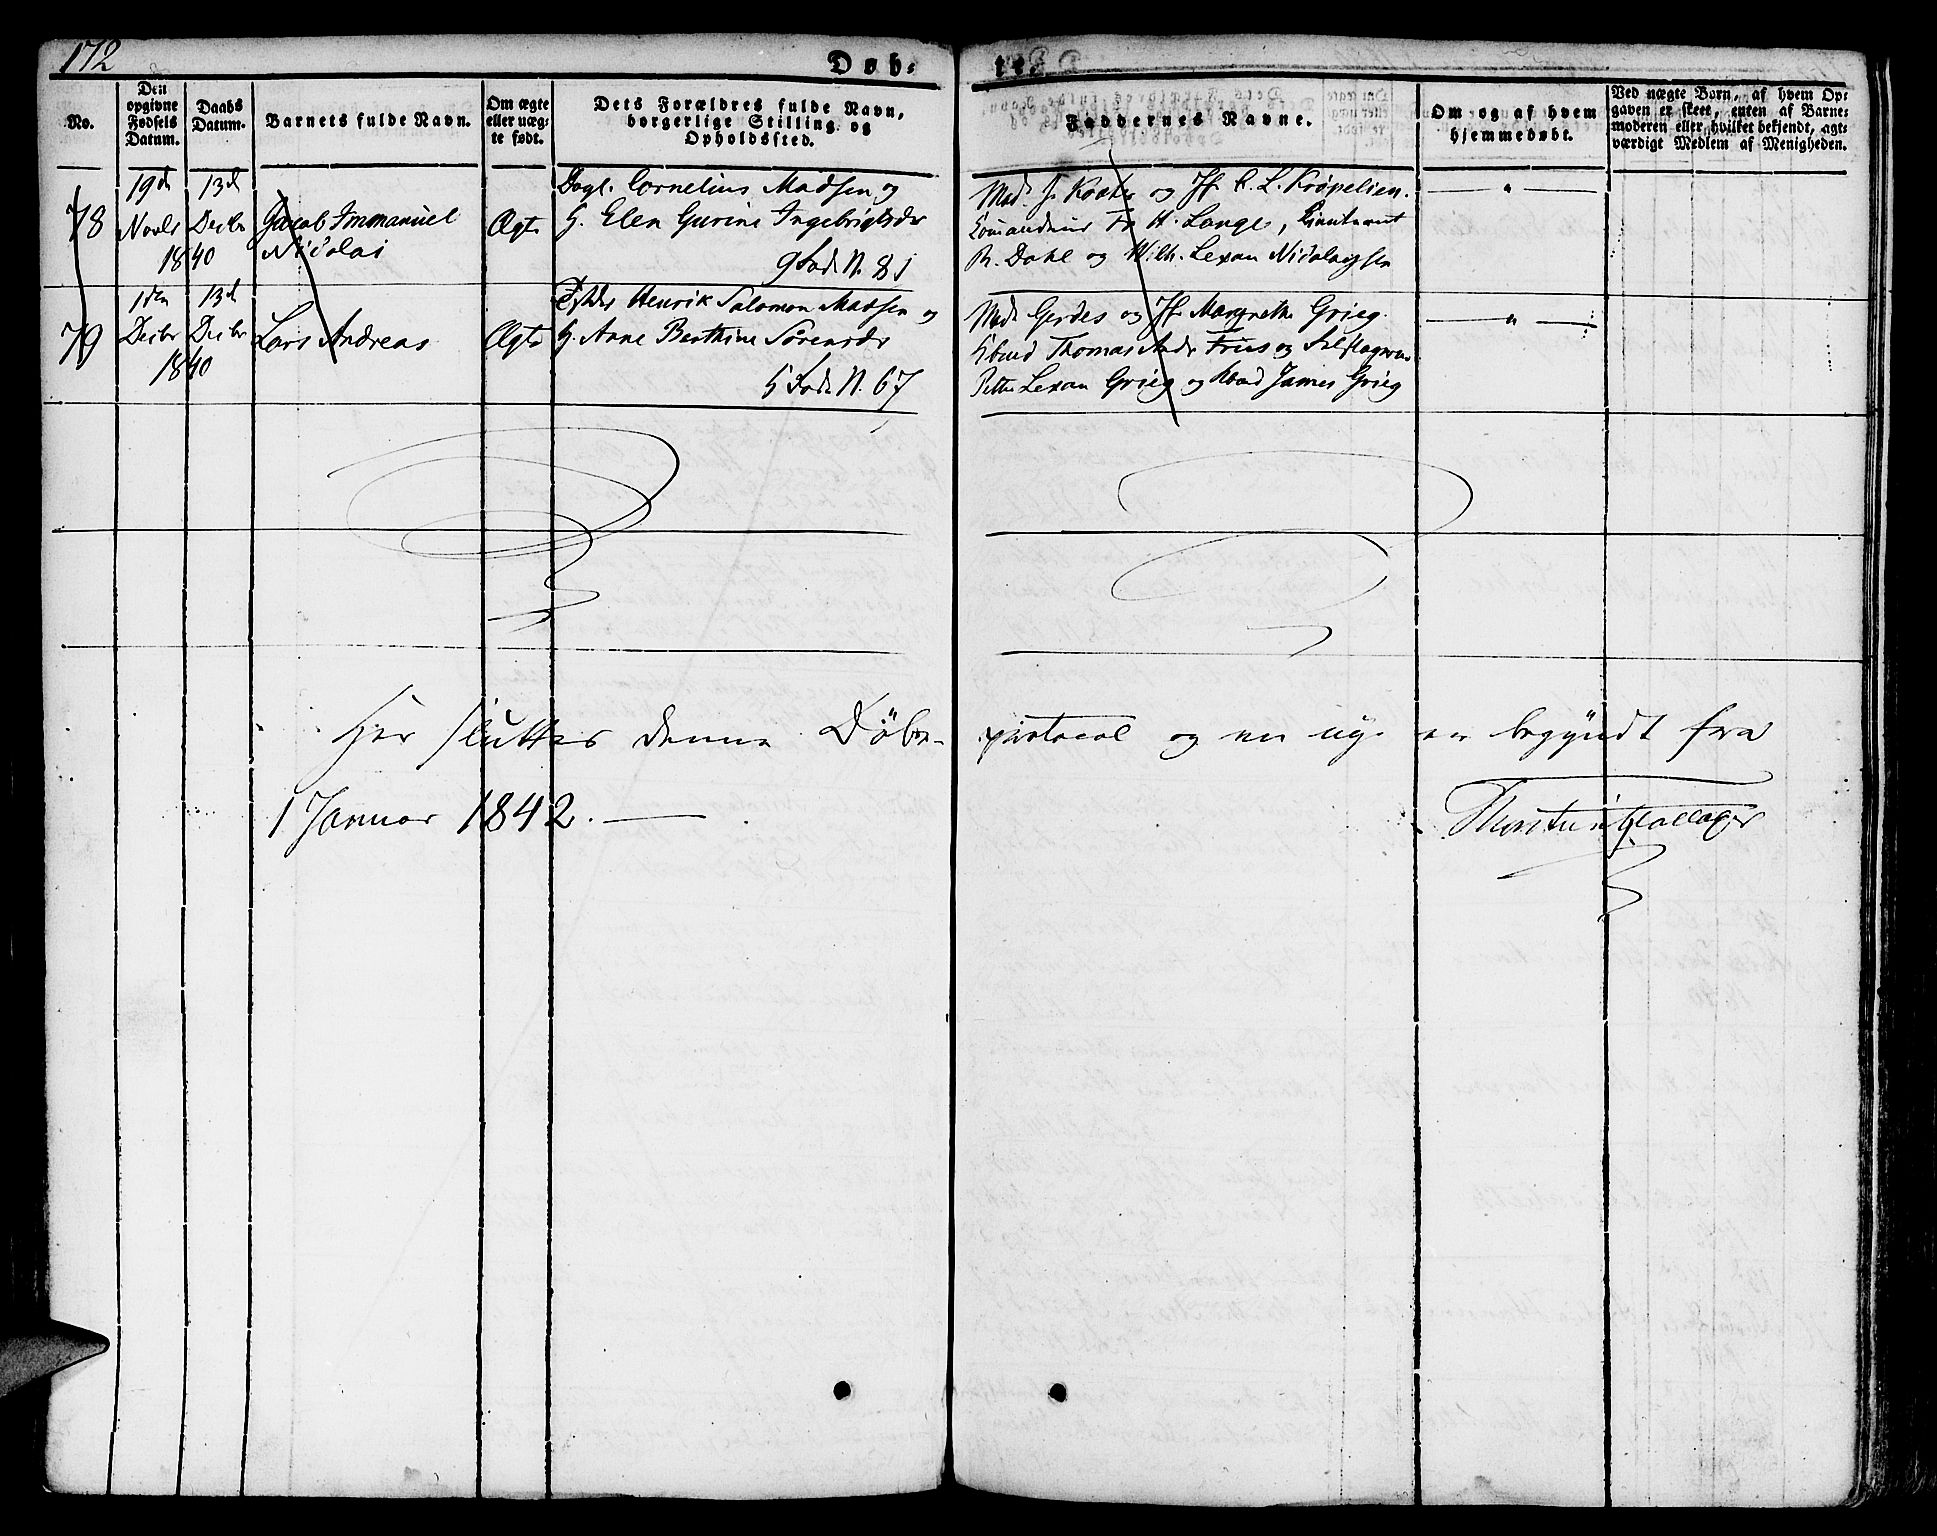 172
Døb-
te.
No.
Den
opgivne
Fødsels
Datum.
Daabs
Datum.
Barnets fulde Navn.
Om ægte
eller uæg-
te født.
Dets Forældres fulde Navn,
borgerlige Stilling og
Opholdssted.
Faddernes Navne.
Om og af hvem
hjemmedøbt.
Ved uægte Børn, af hvem Op-
gaven er skeet, enten af Barne-
moderen eller, hvilket bekjendt, agt-
værdigt Medlem af Menigheden.
78
19d
Novbr
1840
13d
Decbr
Jacob Immanuel
Nicolai
Ægte
Dagl. Cornelius Madsen og
H. Elen Gurine Ingebrigtsdr
9 Rode N. 81
Mad. J. Koehe og Jf. C. L. Krøpelien.
Commandeur Fr H. Lange, Lieutenant
R. Dahl og Wilh. Lexau Nicolaysen
79
1den
Decbr
1840
13d
Decbr
Lars Andreas
Ægte
Henrik Salomon Madsen og
H. Anne Berthine Sørensdr
5 Rode N. 67
Mad. Gerdes og Jf. Margrethe Grieg.
Thomas Andr Friis og
Petter Lexau Grieg og James Grieg
Her sluttes denne Døbe-
protocol og en ny er begyndt fra
1 Januar 1842.